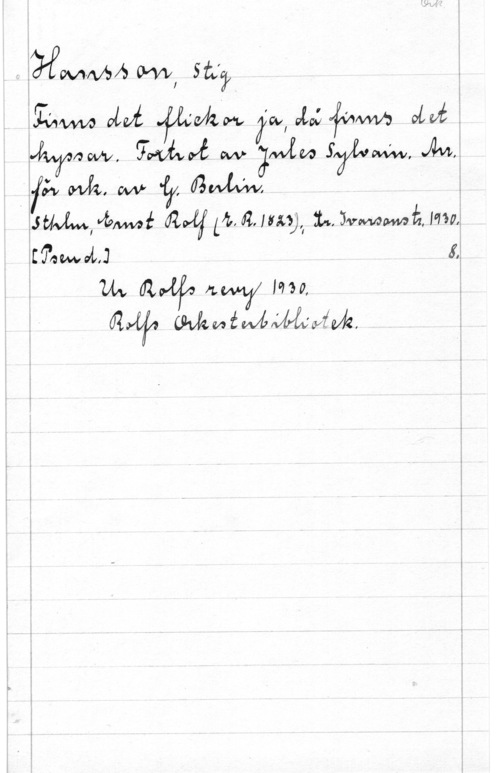 Ork
Hansson, Stig
Finns det flickor ja, då finns det
kyssar. Foxtrot av Jules Sylvain. Arr.
för ork. av G. Berlin.
Sthlm, Ernst Rolf (E. R. 1823), tr. Ivarsons tr. 1930.
[Pseud.] 8.
Ur Rolfs revy 1930.
Rolfs Orkesterbibliotek.